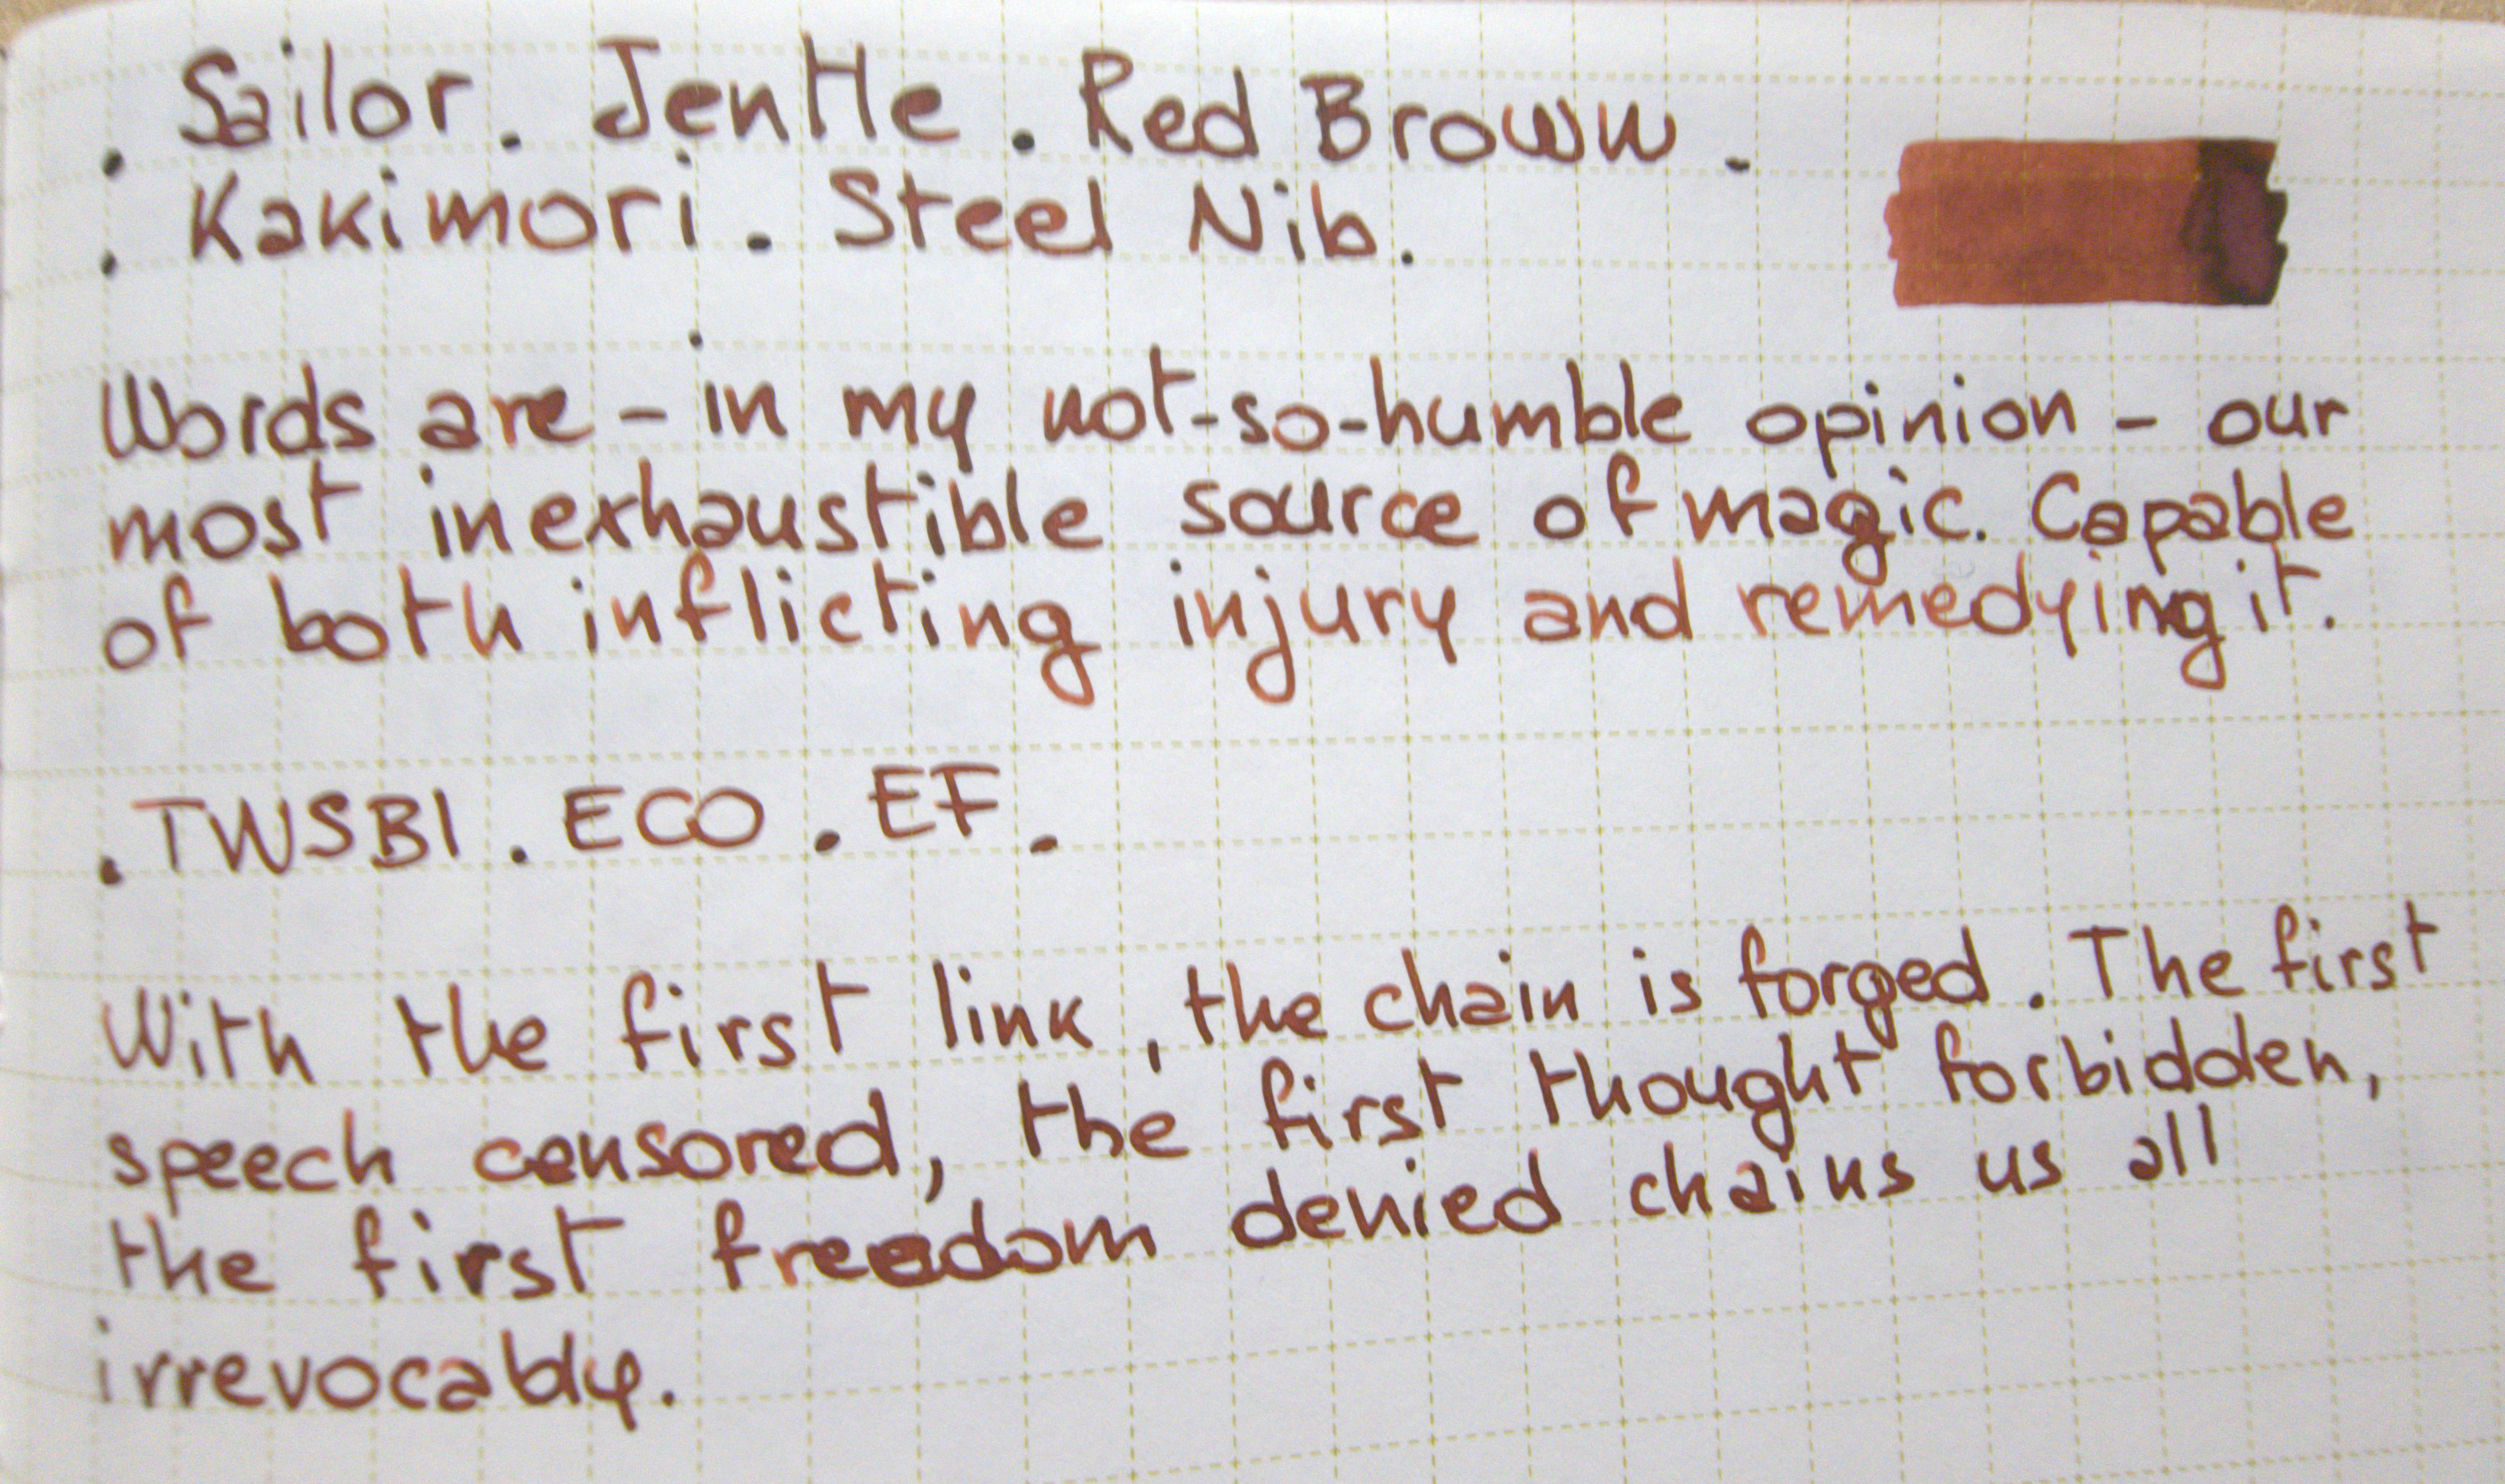 . Sailor . Jentle . Red Brown .
. Kakimori . Steel Nib .
Words are - in my not-so-humble opinion - our
most inexhaustible source of magic. Capable
of both inflicting injury and remedying it.
. TWSBI . ECO . EF .
With the first link, the chain is forged. The first
speech censored, the first thought forbidden,
the first freedom denied chains us all
irrevocably.